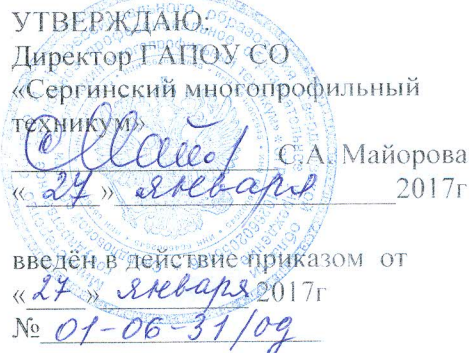 УТВЕРЖДАЮ:
Директор ГАПОУ СО
«Сергинский многопрофильный
техникум»
С.А. Майорова
« 27 » января 2017г
введён в действие приказом от
«27» января 2017г
№ 01-06-31/од